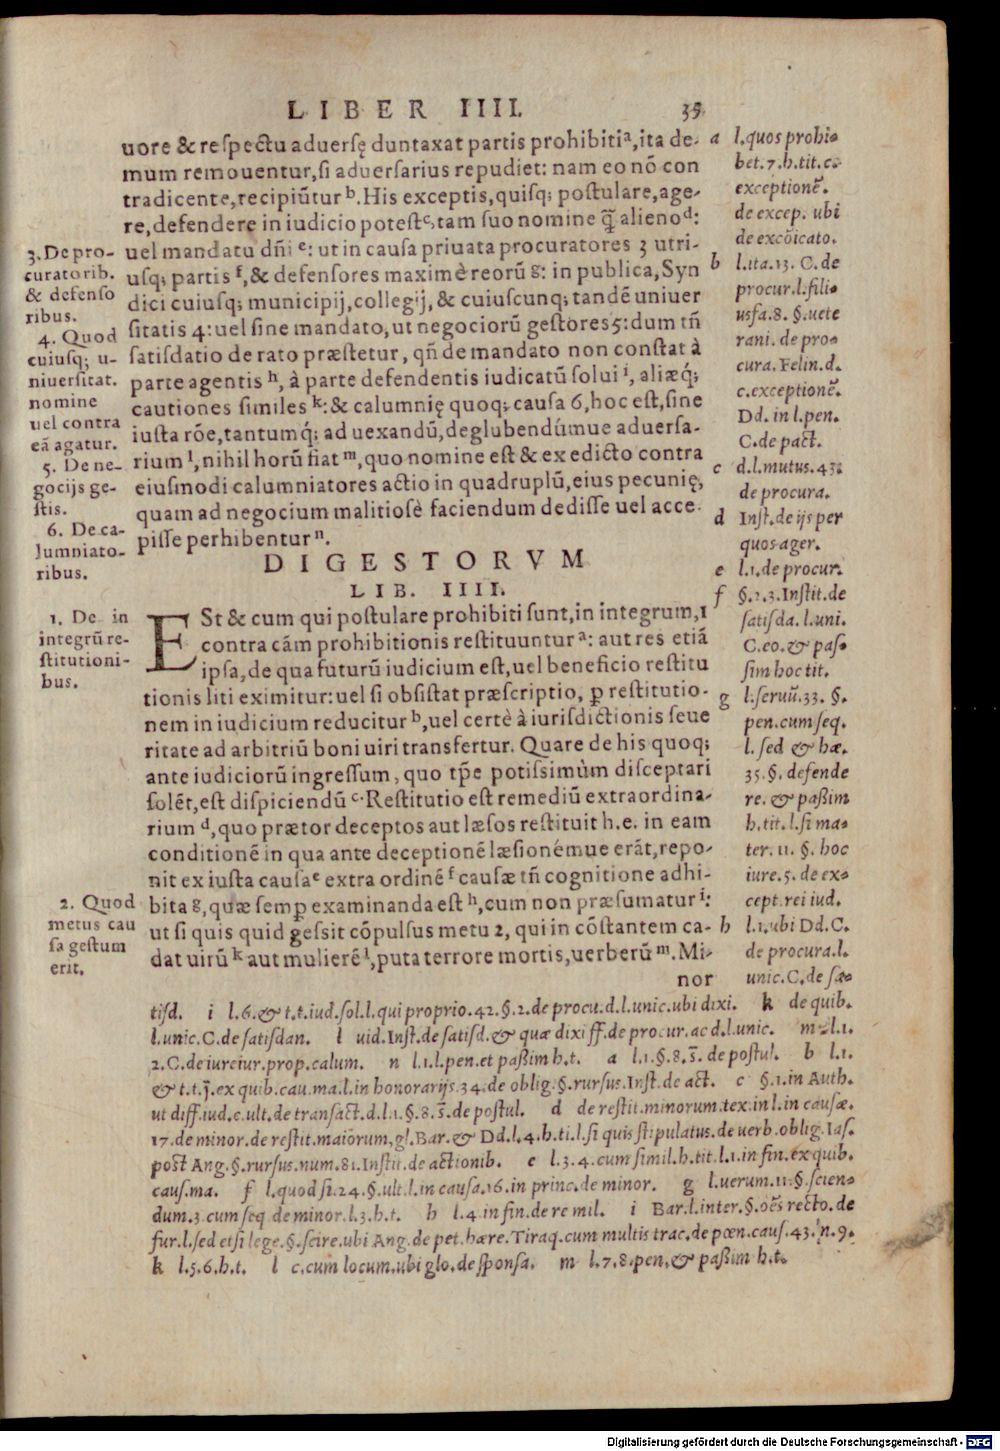 LIBER IIII. 35
uore & respectu aduersę duntaxat partis prohibiti ᵃ, ita de-
mum remouentur, si aduersarius repudiet: nam eo nō con
tradicente, recipiūtur ᵇ. His exceptis, quisq; postulare, age-
re, defendere in iudicio potest ᶜ, tam suo nomine q̃ alieno ᵈ:
uel mandatu dñi ᵉ: ut in causa priuata procuratores 3 utri-
usq; partis ᶠ, & defensores maximè reorū ᵍ: in publica, Syn
dici cuiusq; municipij, collegij, & cuiuscunq; tandē uniuer
sitatis 4: uel sine mandato, ut negociorū gestores 5: dum tñ
satisdatio de rato præstetur, qñ de mandato non constat à
parte agentis ʰ, à parte defendentis iudicatū solui ⁱ, aliæq́;
cautiones similes ᵏ: & calumnię quoq; causa 6, hoc est, sine
iusta rōe, tantumq́; ad uexandū, deglubendúmue aduersa-
rium ˡ, nihil horū fiat ᵐ, quo nomine est & ex edicto contra
eiusmodi calumniatores actio in quadruplū, eius pecunię,
quam ad negocium malitiosè faciendum dedisse uel acce-
pisse perhibentur ⁿ.
3. De pro-
curatorib.
& defenso
ribus.
4. Quod
cuiusq; u-
niuersitat.
nomine
uel contra
eā agatur.
5. De ne-
gocijs ge-
stis.
6. De ca-
lumniato-
ribus.
DIGESTORVM
LIB. IIII.
ESt & cum qui postulare prohibiti sunt, in integrum, 1
contra cám prohibitionis restituuntur ᵃ: aut res etiā
ipsa, de qua futurū iudicium est, uel beneficio restitu
tionis liti eximitur: uel si obsistat præscriptio, ꝑ restitutio-
nem in iudicium reducitur ᵇ, uel certè à iurisdictionis seue
ritate ad arbitriū boni uiri transfertur. Quare de his quoq;
ante iudiciorū ingressum, quo tp̄e potissimùm disceptari
solēt, est dispiciendū ᶜ. Restitutio est remediū extraordina-
rium ᵈ, quo prætor deceptos aut læsos restituit h.e. in eam
conditionē in qua ante deceptionē læsionémue erāt, repo-
nit ex iusta causa ᵉ extra ordinē ᶠ causæ tñ cognitione adhi-
bita ᵍ, quæ semꝑ examinanda est ʰ, cum non præsumatur ⁱ:
ut si quis quid gessit cōpulsus metu 2, qui in cōstantem ca-
dat uirū ᵏ aut mulierē ˡ, puta terrore mortis, uerberū ᵐ. Mi-
nor
1. De in
integrū re-
stitutioni-
bus.
2. Quod
metus cau
sa gestum
erit.
a l. quos prohi-
bet. 7. h. tit. c.
exceptionē.
de excep. ubi
de excōicato.
b l. ita. 13. C. de
procur. l. fili-
usfa. 8. §. uete
rani. de pro-
cura. Felin. d.
c. exceptionē.
Dd. in l. pen.
C. de pact.
c d. l. mutus. 43.
de procura.
d Inst. de ijs per
quos ager.
e l. 1. de procur.
f §. 2. 3. Instit. de
satisda. l. uni.
C. eo. & pas-
sim hoc tit.
g l. seruū. 33. §.
pen. cum seq.
l. sed & hæ.
35. §. defende
re. & paßim
h. tit. l. si ma-
ter. 11. §. hoc
iure. 5. de ex-
cept. rei iud.
h l. 1. ubi Dd. C.
de procura. l.
unic. C. de sa-
tisd. i l. 6. & t. t. iud. sol. l. qui proprio. 42. §. 2. de procu. d. l. unic. ubi dixi. k de quib.
l. unic. C. de satisdan. l uid. Inst. de satisd. & quæ dixi ff. de procur. ac d. l. unic. m l. 1.
2. C. de iureiur. prop. calum. n l. 1. l. pen. et paßim h. t. a l. 1. §. 8. s̄. de postul. b l. 1.
& t. t. j̄. ex quib. cau. ma. l. in honorarijs. 34. de oblig. §. rursus. Inst. de act. c §. 1. in Auth.
ut diff. iud. c. ult. de transact. d. l. 1. §. 8. s̄. de postul. d de restit. minorum. tex. in l. in causæ.
17. de minor. de restit. maiorum, gl. Bar. & Dd. l. 4. h. ti. l. si quis stipulatus. de uerb. oblig. Ias.
post Ang. §. rursus. num. 81. Instit. de actionib. e l. 3. 4. cum simil. h. tit. l. 1. in fin. ex quib.
caus. ma. f l. quod si. 24. §. ult. l. in causa. 16. in princ. de minor. g l. uerum. 11. §. scien-
dum. 3. cum seq. de minor. l. 3. h. t. h l. 4. in fin. de re mil. i Bar. l. inter. §. oēs recto. de
fur. l. sed etsi lege. §. scire. ubi Ang. de pet. hære. Tiraq. cum multis trac. de pœn. caus. 43. n. 9.
k l. 5. 6. h. t. l c. cum locum. ubi glo. de sponsa. m l. 7. 8. pen. & paßim h. t.
Digitalisierung gefördert durch die Deutsche Forschungsgemeinschaft - DFG